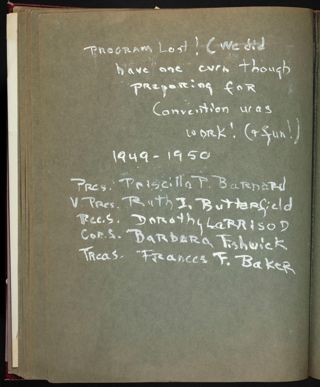 PROGRAM Lost! (We did
have one even though
preparing for
Convention was
work! (+ fun!)
1949-1950
Pres. Priscilla P. Barnard
V Pres. Ruth I. Butterfield
Rec.S. Dorothy LARRISOD
Cor.S. BARBARA Fishwick
Treas. Frances F. Baker